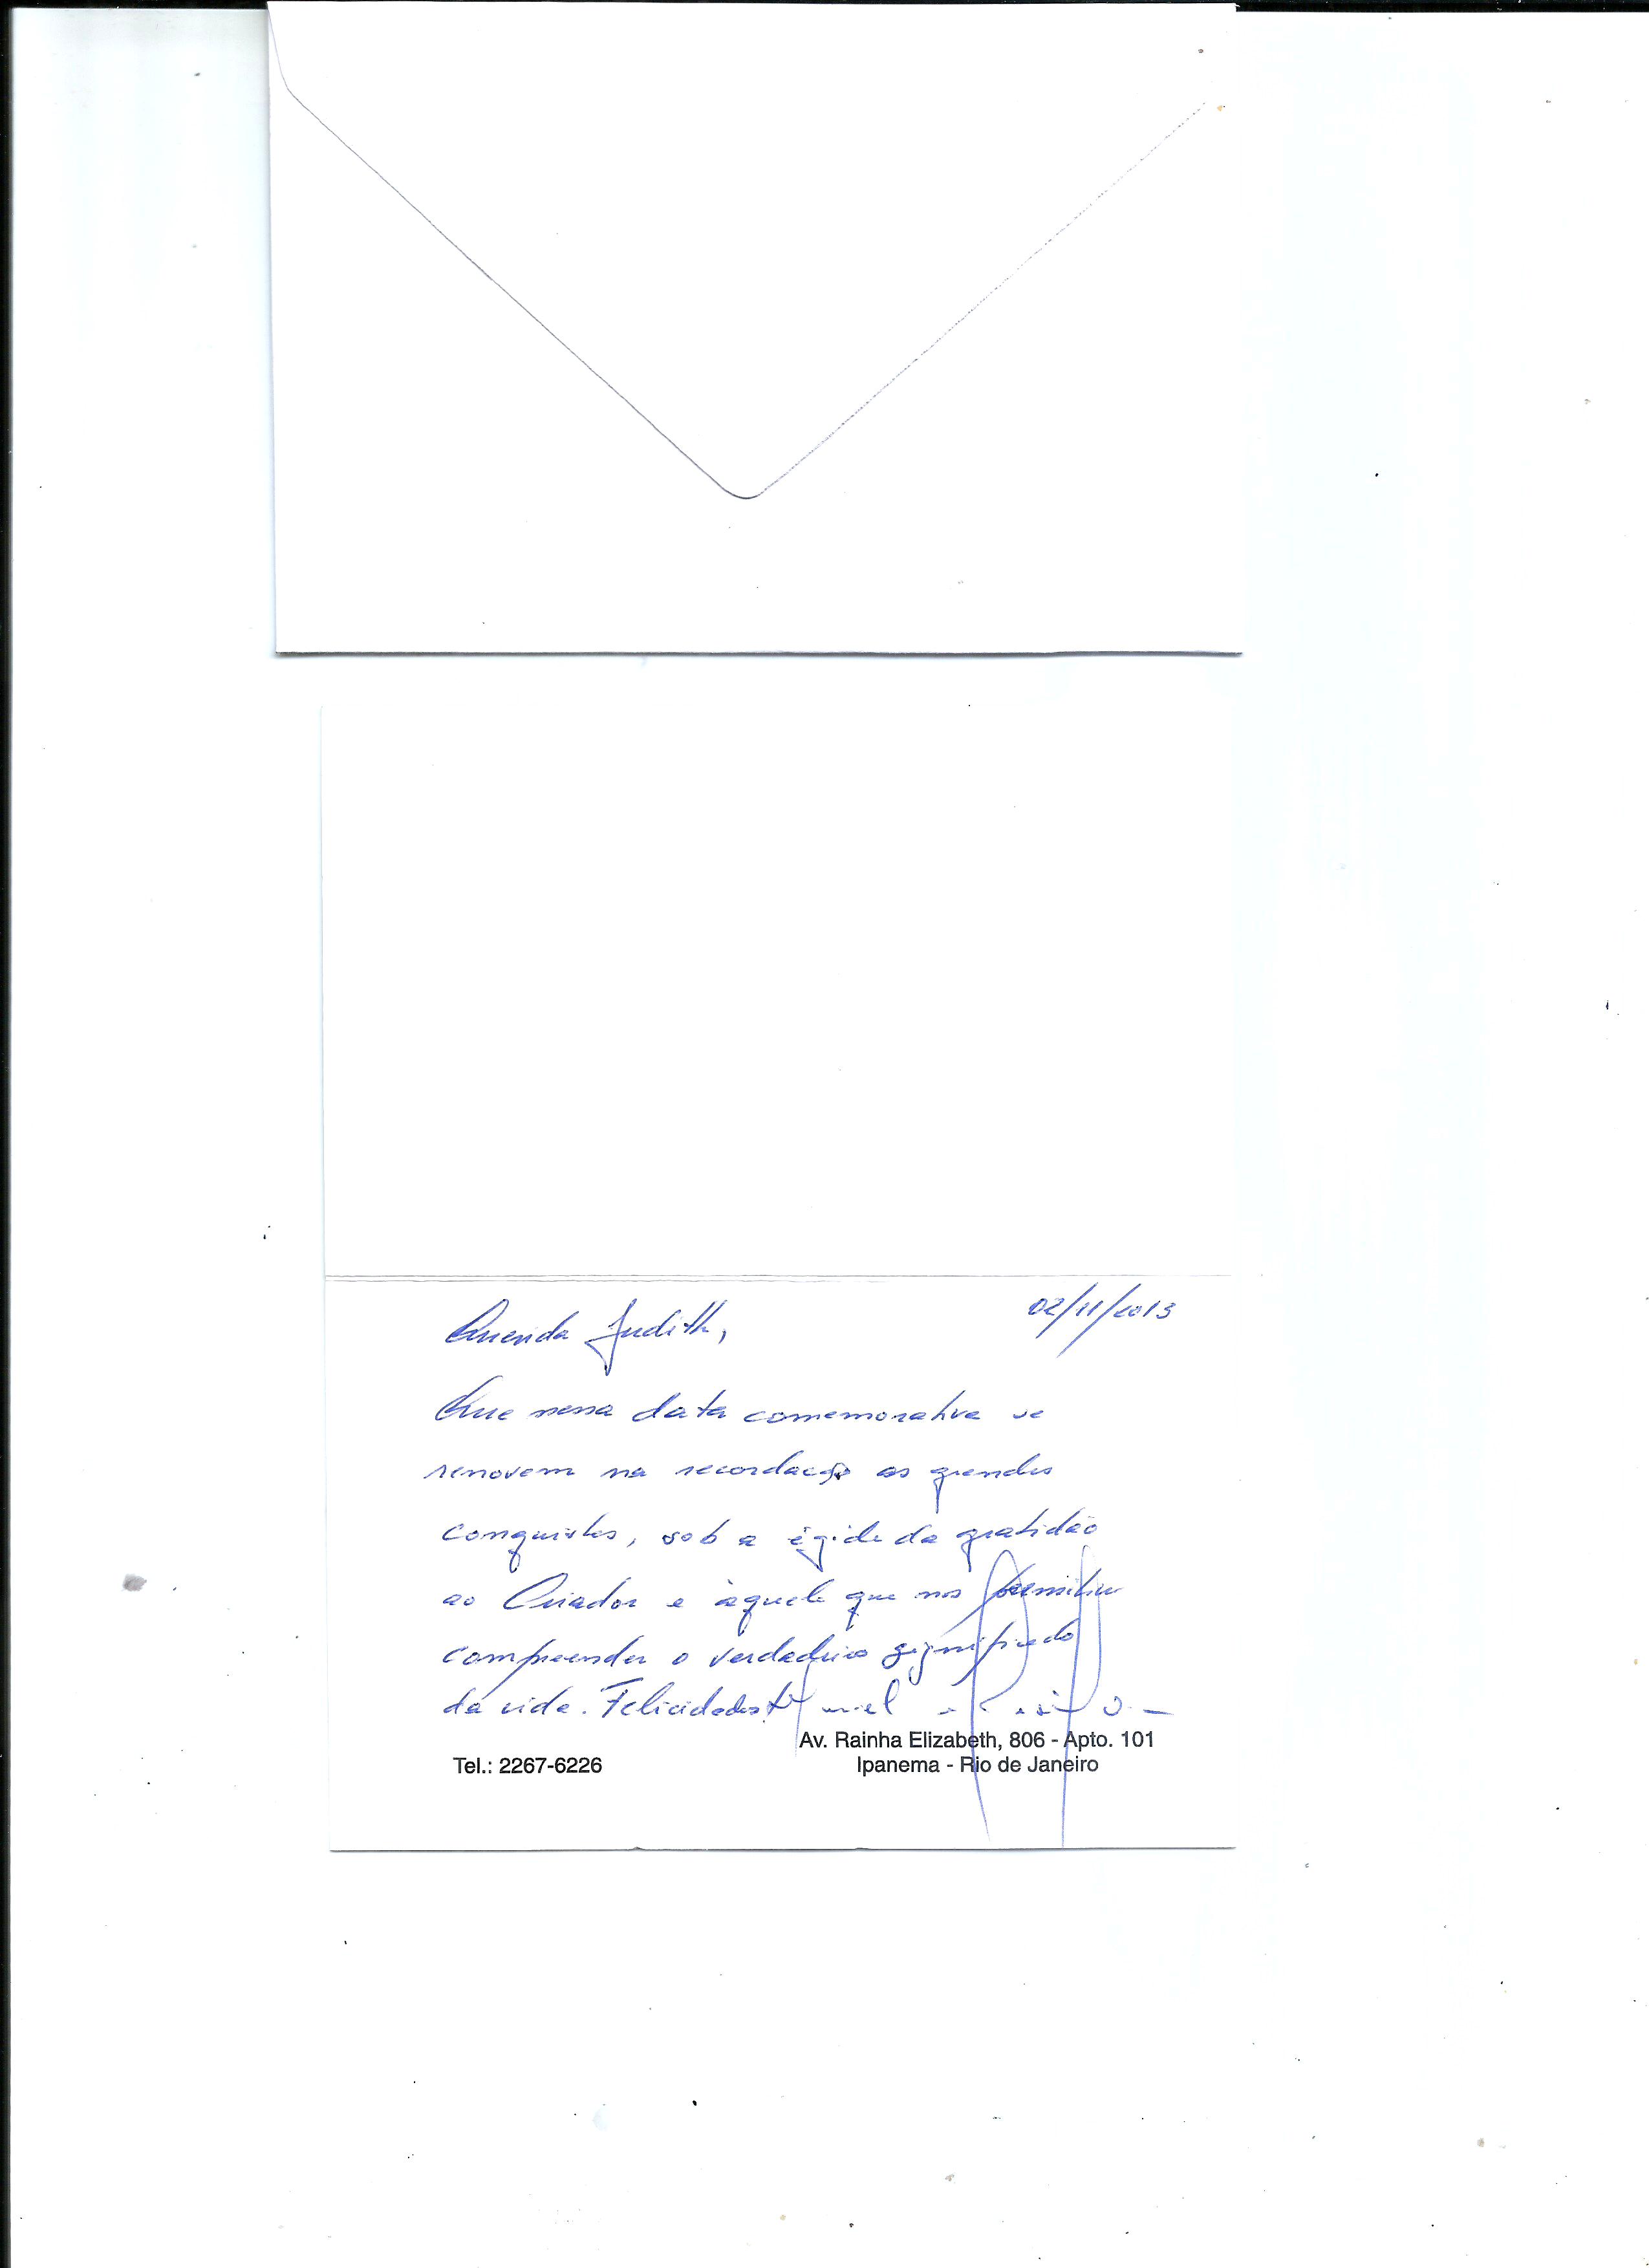 02/11/2013
Querida Judith,
Que nessa data comemorativa se
renovem na recordação as grandes
conquistas, sob a égide da gratidão
ao Criador e àquele que nos permitiu
compreender o verdadeiro significado
da vida. Felicidades!
Av. Rainha Elizabeth, 806 - Apto. 101
Tel.: 2267-6226
Ipanema - Rio de Janeiro